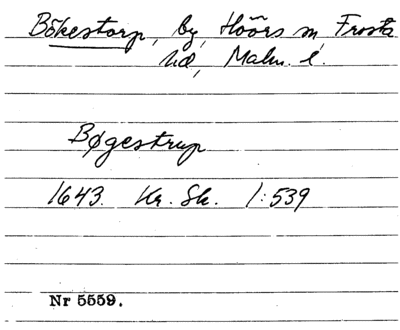 Bökestorp, by, Höörs sn, Frosta
hd, Malm. l.
Bøgestrup
1643. Kr. Sk. 1:539
Nr 5559.